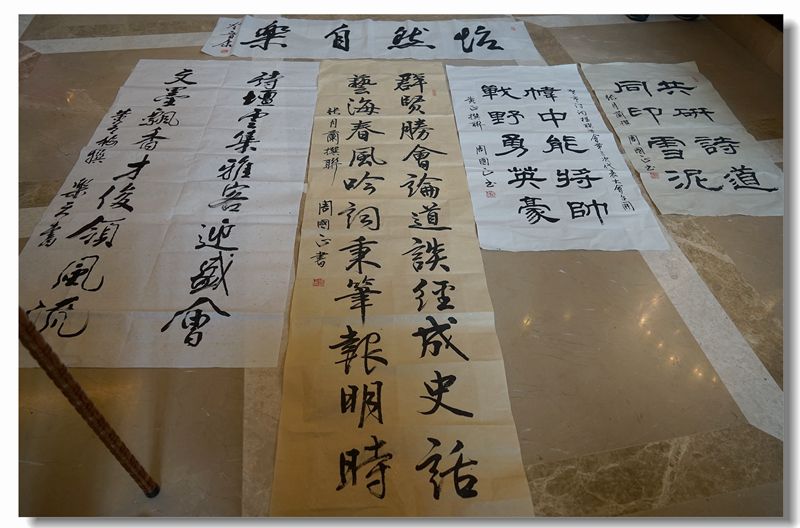 怡然自樂
詩壇雲集雅客迎盛會
文墨飄香才俊領風流
群賢勝會論道談經成史話
藝海春風吟詞秉筆報明時
月蘭撰聯
周國正書
幃中能將帥
戰野勇英豪
周國正書
共研詩道
同印雪泥
月蘭撰
周國正書